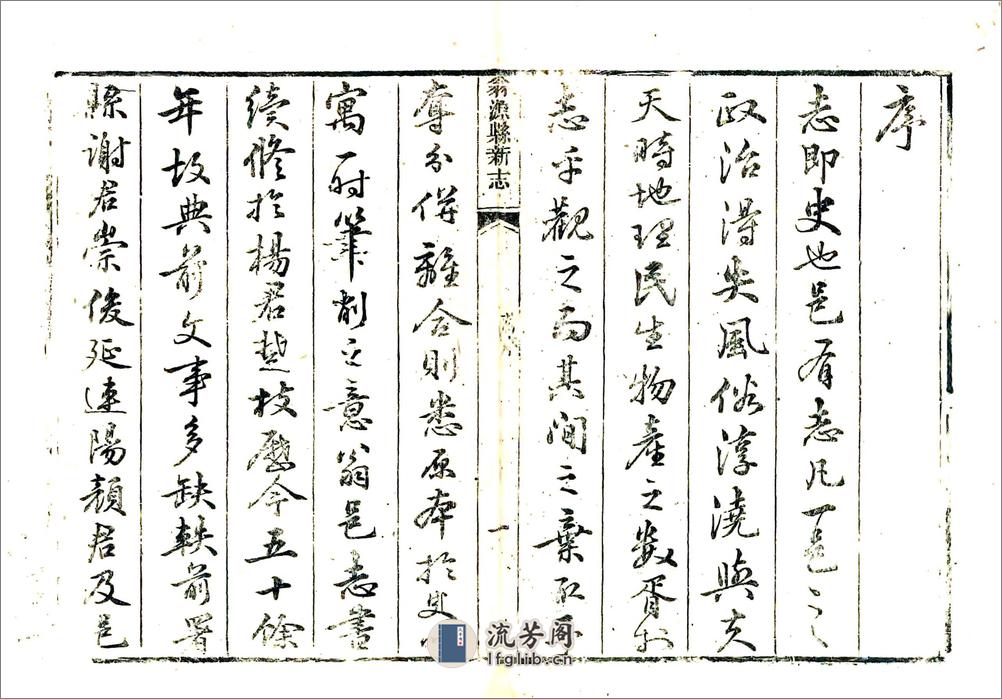 序
志即史也邑有志凡一邑之
政治得失風俗淳澆與夫
天時地理民生物產之數胥於
志乎觀之而其間之棄取
翁源縣新志
一
奪分併離合則悉原本於史
寓一時筆削之意翁邑志書
續修於楊君楚枝歷今五十餘
年故典前文事多缺軼前署
縣謝君崇俊延連陽顏君及邑
流芳阁
lfglib.cn